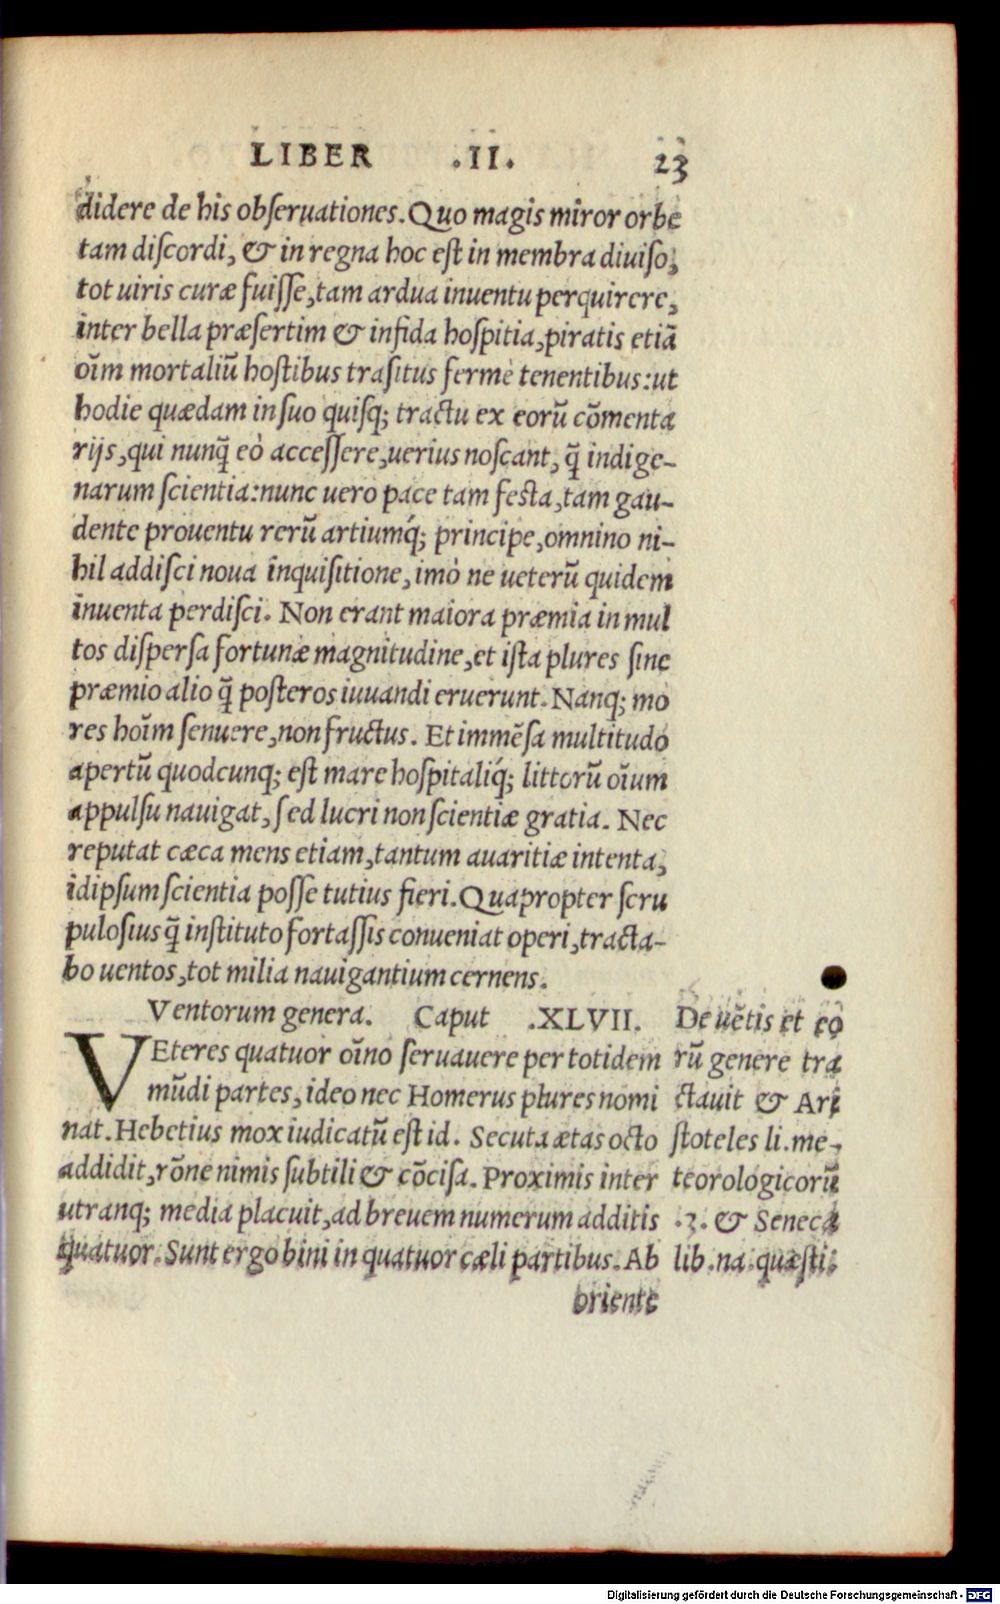 LIBER .II. 23
didere de his obſeruationes. Quo magis miror orbe
tam diſcordi, & in regna hoc eſt in membra diuiſo,
tot uiris curæ fuiſſe, tam ardua inuentu perquirere,
inter bella præſertim & infida hoſpitia, piratis etiã
oĩm mortaliũ hoſtibus traſitus ferme tenentibus: ut
hodie quædam in ſuo quiſq; tractu ex eorũ cõmenta
rijs, qui nunq̃ eò acceſſere, uerius noſcant, q̃ indige-
narum ſcientia: nunc uero pace tam feſta, tam gau-
dente prouentu rerũ artiumq́; principe, omnino ni-
hil addiſci noua inquiſitione, imò ne ueterũ quidem
inuenta perdiſci. Non erant maiora præmia in mul
tos diſperſa fortunæ magnitudine, et iſta plures ſine
præmio alio q̃ poſteros iuuandi eruerunt. Nanq; mo
res hoĩm ſenuere, non fructus. Et immẽſa multitudo
apertũ quodcunq; eſt mare hoſpitaliq́; littorũ oĩum
appulſu nauigat, ſed lucri non ſcientiæ gratia. Nec
reputat cæca mens etiam, tantum auaritiæ intenta,
idipſum ſcientia poſſe tutius fieri. Quapropter ſcru
puloſius q̃ inſtituto fortaſſis conueniat operi, tracta-
bo uentos, tot milia nauigantium cernens.
Ventorum genera. Caput .XLVII.
VEteres quatuor oĩno ſeruauere per totidem
mũdi partes, ideo nec Homerus plures nomi
nat. Hebetius mox iudicatũ eſt id. Secuta ætas octo
addidit, rõne nimis ſubtili & cõciſa. Proximis inter
utranq; media placuit, ad breuem numerum additis
quatuor. Sunt ergo bini in quatuor cæli partibus. Ab
oriente
De uẽtis et eo
rũ genere tra
ctauit & Ari
ſtoteles li. me-
teorologicorũ
.3. & Seneca
lib. na. quæſti.
Digitalisierung gefördert durch die Deutsche Forschungsgemeinschaft - DFG